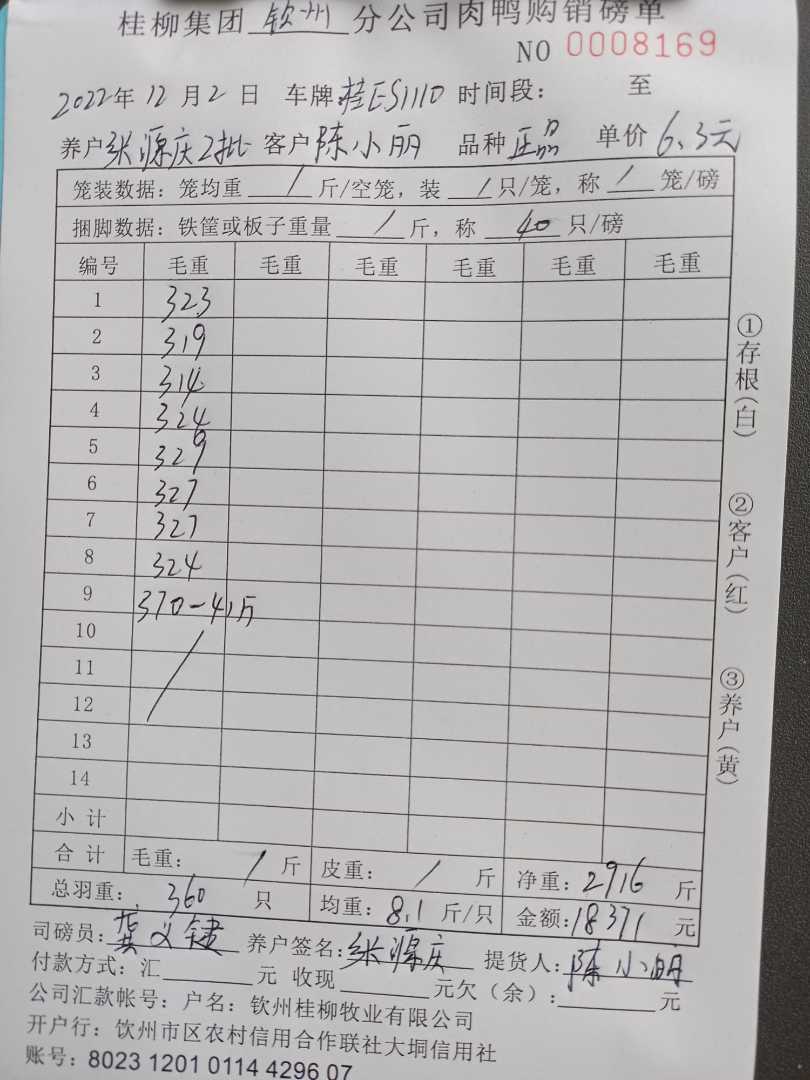 桂柳集团 钦州 分公司肉鸭购销磅单
NO 0008169
2022年 12 月 2 日 车牌 桂ES1110 时间段: 至
养户 张源庆2批 客户 陈小丽 品种 正品 单价 6.3元
笼装数据: 笼均重 / 斤/空笼, 装 / 只/笼, 称 / 笼/磅
捆脚数据: 铁筐或板子重量 / 斤, 称 40 只/磅
编号 毛重 毛重 毛重 毛重 毛重 毛重
1 323
2 319
3 314
4 324
5 329
6 327
7 327
8 324
9 370-41斤
10 /
11
12
13
14
小计
合计 毛重: / 斤 皮重: / 斤 净重: 2916 斤
总羽重: 360 只 均重: 8.1 斤/只 金额: 18371 元
司磅员: 龚义键 养户签名: 张源庆 提货人: 陈小丽
付款方式: 汇 元 收现 元欠(余): 元
公司汇款帐号: 户名: 钦州桂柳牧业有限公司
开户行: 钦州市区农村信用合作联社大垌信用社
账号: 8023 1201 0114 4296 07
①存根(白)
②客户(红)
③养户(黄)